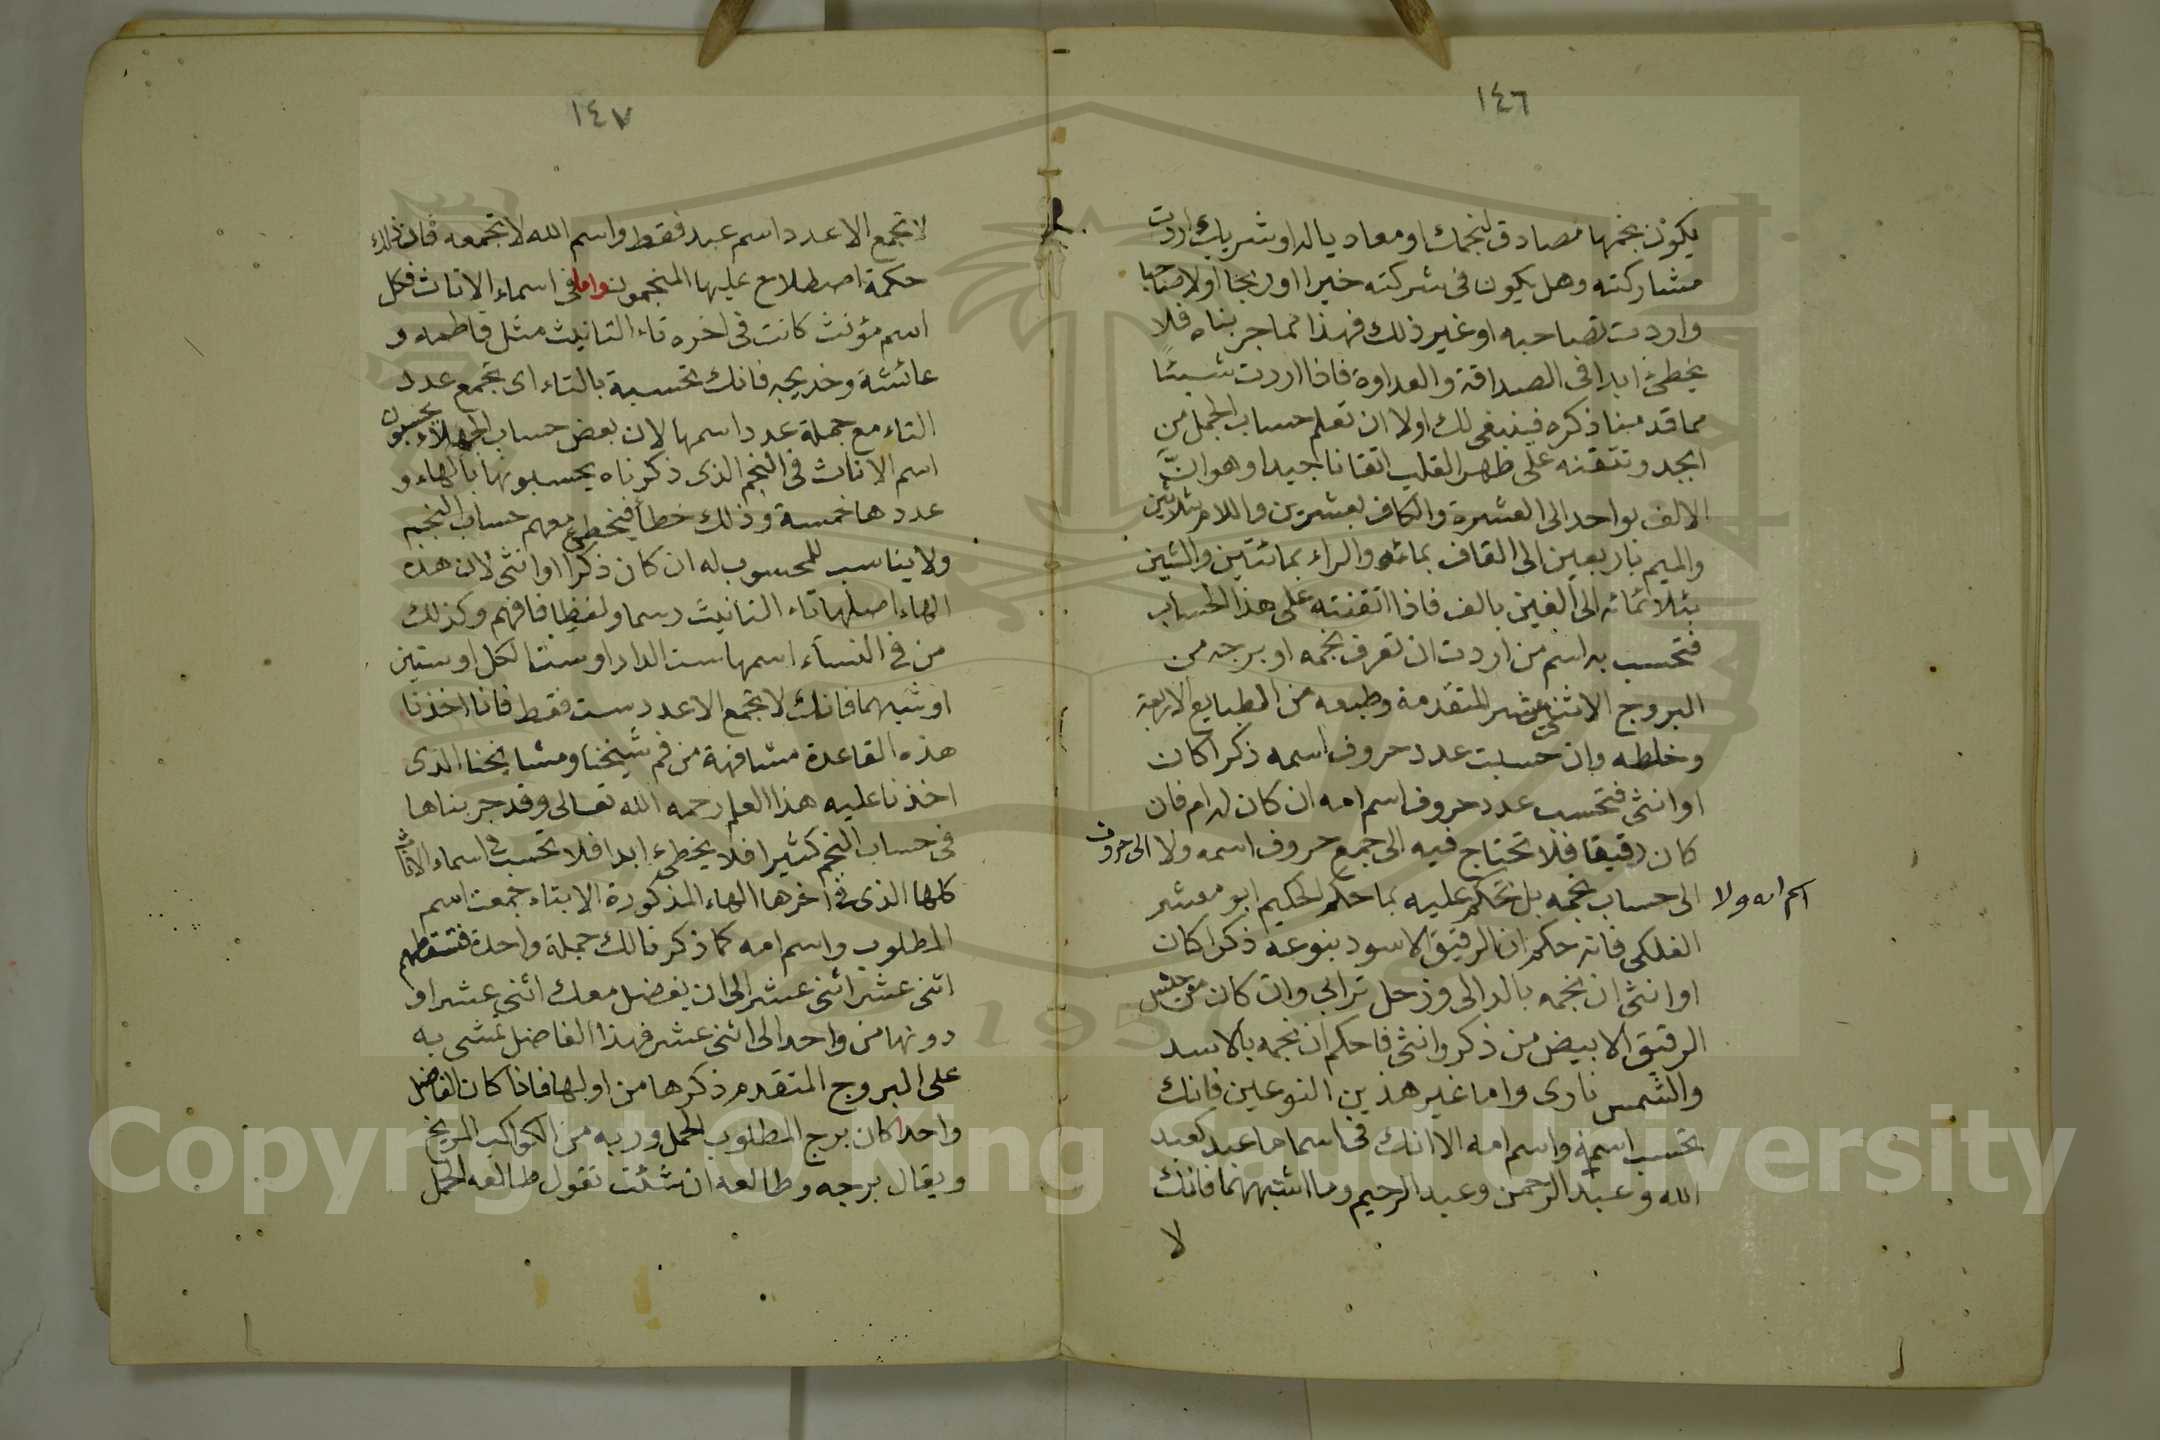 ١٤٦
يكون نجمها مصادق لنجمك او معاديا له او شريك اردت
مشاركته وهل يكون في شركته خيرا او ربحا اولا صاحبا
واردت تصاحبه او غير ذلك فهذا مما جربناه فلا
يخطئ ابدا في الصداقة والعداوة فاذا اردت شيئا
مما قدمنا ذكره فينبغى لك اولا ان تعلم حساب الجمل من
ابجد وتتقنه على ظهر القلب اتقانا جيدا وهو انَّ
الالف بواحد الى العشرة والكاف بعشرين واللام بثلاثين
والميم باربعين الى القاف بمائه والراء بمائتين والشين
بثلاثمائه الى الغين بالف فاذا اتقنته على هذا الحساب
فتحسب به اسم من اردت ان تعرف نجمه او برجه من
البروج الاثنى عشر المتقدمة وطبعه من الطبايع الاربعة
وخلطه وان حسبت عدد حروف اسمه ذكرا كان
او انثى فتحسب عدد حروف اسم امه ان كان له ام فان
كان رقيقا فلا تحتاج فيه الى جمع حروف اسمه ولا الى حروف
اسم امه ولا الى حساب نجمه بل تحكم عليه بما حكم الحكيم ابو معشر
الفلكى فانه حكم ان الرقيق الاسود بنوعه ذكرا كان
او انثى ان نجمه بالدالى وزحل ترابى وان كان من جنس
الرقيق الابيض من ذكر وانثى فاحكم ان نجمه بالاسد
والشمس نارى واما غير هذين النوعين فانك
تحسب اسمه واسم امه الا انك في اسما ما عبد كعبد
الله وعبد الرحمن وعبد الرحيم وما اشبههما فانك
لا
١٤٧
لا تجمع الا عدد اسم عبد فقط واسم الله لا تجمعه فان ذلك
حكمة اصطلاح عليها المنجمون واما في اسماء الاناث فكل
اسم مؤنث كانت في اخره تاء التانيث مثل فاطمه و
عائشة وخديجه فانك تحسبة بالتاء اى تجمع عدد
التاء مع جملة عدد اسمها لان بعض حساب الجهلاء يحسبون
اسم الاناث في النجم الذى ذكرناه يحسبونها بالهاء و
عددها خمسة وذلك خطأ فيخطئ معهم حساب النجم
ولا يناسب للمحسوب له ان كان ذكرا او انثى لان هذه
الهاء اصلها تاء التانيث رسما ولفظا فافهم وكذلك
من في النساء اسمها ست الدار او ستنا لكل او ستين
او شبههما فانك لا تجمع الا عدد ست فقط فانا اخذنا
هذه القاعدة مشافهة من فم شيخنا ومشايخنا الذى
اخذنا عليه هذا العلم رحمه الله تعالى وقد جربناها
فى حساب النجم كثيرا فلا يخطئ ابدا فلا تحسب في اسماء الاناث
كلها الذى في اخرها الهاء المذكورة الا بتاء جمعت اسم
المطلوب واسم امه كما ذكرنا لك جملة واحدة فتسقطهم
اثنى عشر اثنى عشر الى ان يفضل معك اثنى عشر او
دونها من واحد الى اثنى عشر فهذا الفاضل تمشى به
على البروج المتقدم ذكرها من اولها فاذا كان الفاضل
واحدا كان برج المطلوب الحمل وربه من الكواكب المريخ
ويقال برجه وطالعه ان شئت تقول طالعه الحمل